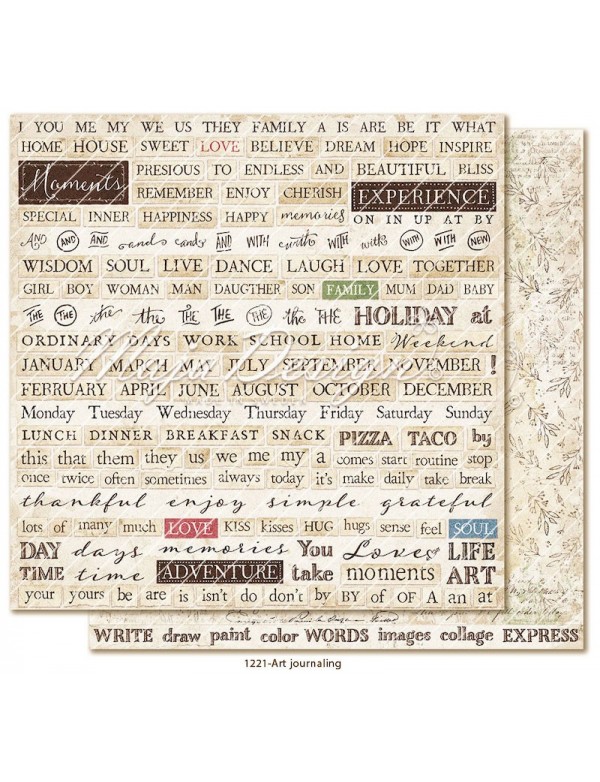 I YOU ME MY WE US THEY FAMILY A IS ARE BE IT WHAT
HOME HOUSE SWEET LOVE BELIEVE DREAM HOPE INSPIRE
Moments PRESIOUS TO ENDLESS AND BEAUTIFUL BLISS
REMEMBER ENJOY CHERISH EXPERIENCE
SPECIAL INNER HAPPINESS HAPPY memories ON IN UP AT BY
AND AND AND and and AND WITH with WITH with WITH WITH NEW
WISDOM SOUL LIVE DANCE LAUGH LOVE TOGETHER
GIRL BOY WOMAN MAN DAUGTHER SON FAMILY MUM DAD BABY
THE THE the the THE THE the THE HOLIDAY at
ORDINARY DAYS WORK SCHOOL HOME Weekend
JANUARY MARCH MAY JULY SEPTEMBER NOVEMBER !
FEBRUARY APRIL JUNE AUGUST OCTOBER DECEMBER
Monday Tuesday Wednesday Thursday Friday Saturday Sunday
LUNCH DINNER BREAKFAST SNACK PIZZA TACO by
this that them they us we me my a comes start routine stop
once twice often sometimes always today it's make daily take break
thankful enjoy simple grateful
lots of many much LOVE KISS kisses HUG hugs sense feel SOUL
DAY days memories You Loves LIFE
TIME time ADVENTURE take moments ART
your yours be are is isn't do don't by BY of OF A an at
WRITE draw paint color WORDS images collage EXPRESS
1221-Art journaling